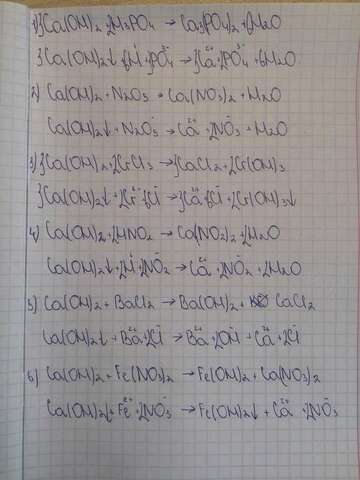 1) 3Ca(OH)2 + 2H3PO4 → Ca3(PO4)2 + 6H2O
3Ca(OH)2↓ + 6H⁺ + 2PO4³⁻ → 3Ca²⁺ + 2PO4³⁻ + 6H2O
2) Ca(OH)2 + N2O5 → Ca(NO3)2 + H2O
Ca(OH)2↓ + N2O5 → Ca²⁺ + 2NO3⁻ + H2O
3) 3Ca(OH)2 + 2CrCl3 → 3CaCl2 + 2Cr(OH)3
3Ca(OH)2↓ + 2Cr³⁺ + 6Cl⁻ → 3Ca²⁺ + 6Cl⁻ + 2Cr(OH)3↓
4) Ca(OH)2 + 2HNO2 → Ca(NO2)2 + 2H2O
Ca(OH)2↓ + 2H⁺ + 2NO2⁻ → Ca²⁺ + 2NO2⁻ + 2H2O
5) Ca(OH)2 + BaCl2 → Ba(OH)2 + CaCl2
Ca(OH)2↓ + Ba²⁺ + 2Cl⁻ → Ba²⁺ + 2OH⁻ + Ca²⁺ + 2Cl⁻
6) Ca(OH)2 + Fe(NO3)2 → Fe(OH)2 + Ca(NO3)2
Ca(OH)2↓ + Fe²⁺ + 2NO3⁻ → Fe(OH)2↓ + Ca²⁺ + 2NO3⁻